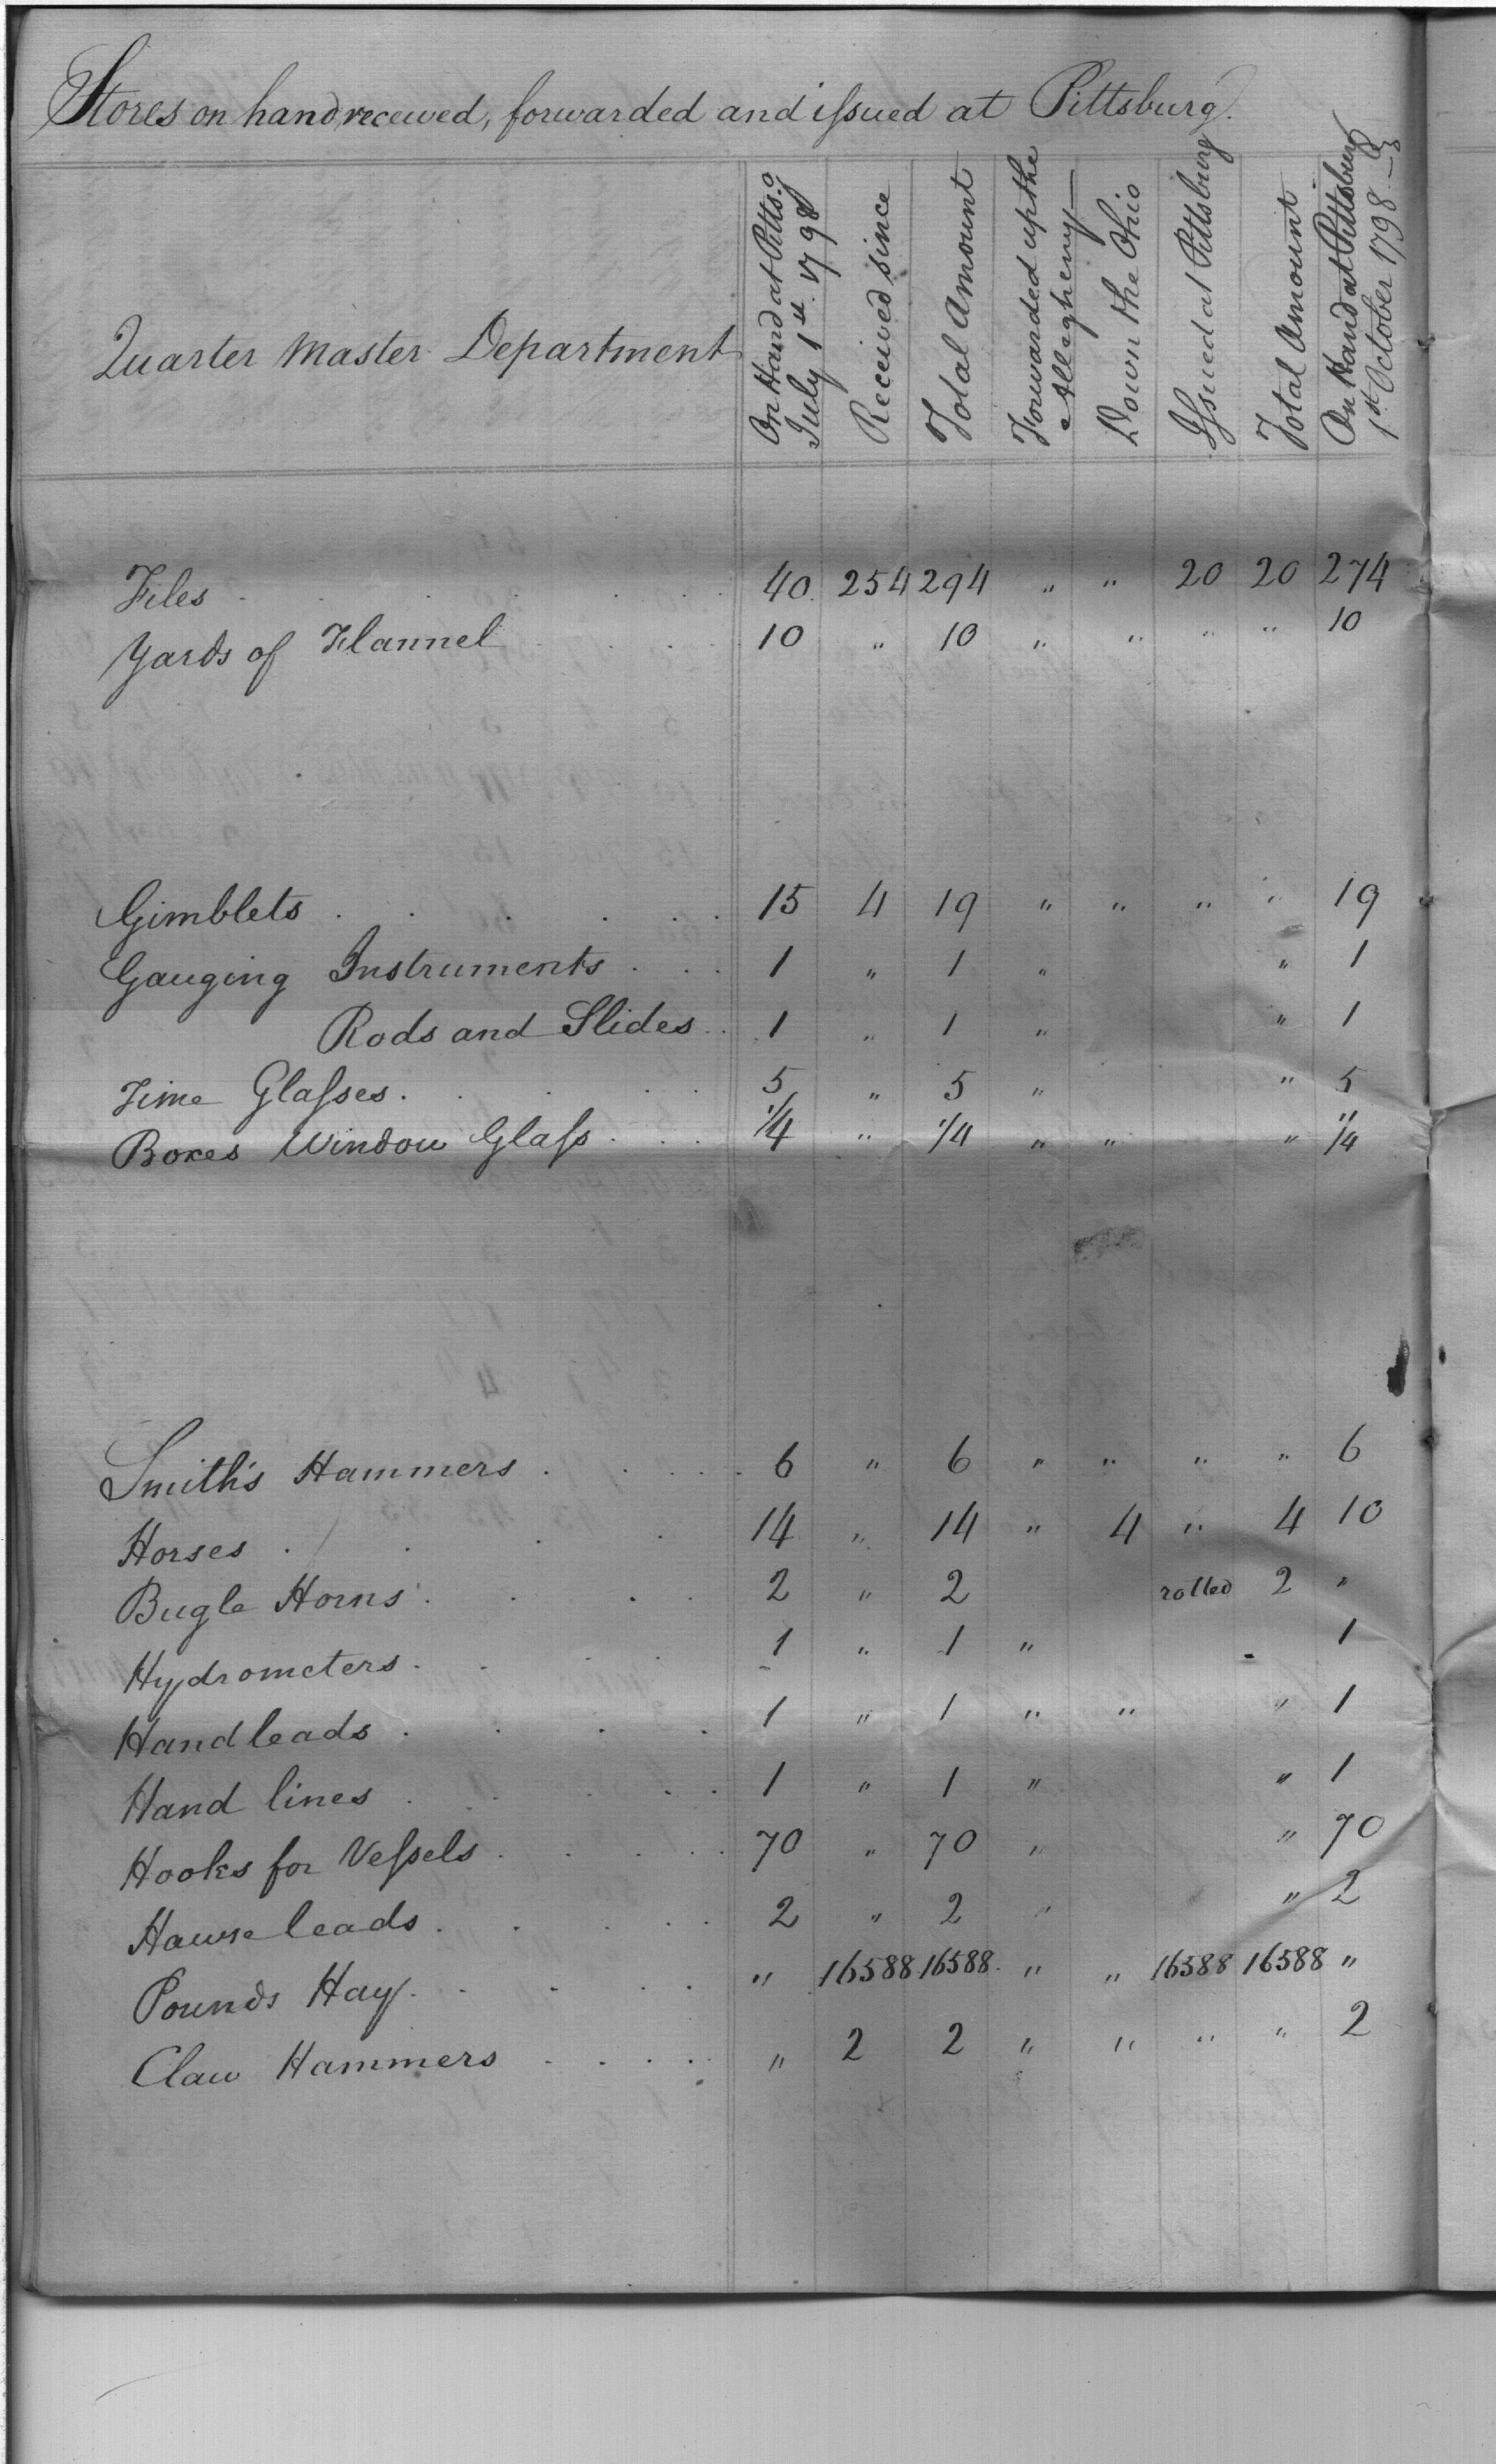 Stores on hand, received, forwarded and issued at Pittsburg.
Quarter Master Department
On Hand at Pitts.g
July 1st. 1798
Received since
Total Amount
Forwarded up the
Allegheny
Down the Ohio
Issued at Pittsburg
Total Amount
On Hand at Pittsburg
1st. October 1798
Files . . . . . . 40 254 294 " " 20 20 274
Yards of Flannel . . . . 10 " 10 " " " " 10
Gimblets . . . . . . 15 4 19 " " " " 19
Gauging Instruments . . . 1 " 1 " " 1
Rods and Slides . . 1 " 1 " " 1
Time Glasses . . . . . 5 " 5 " " 5
Boxes Window Glass . . . 1/4 " 1/4 " " " 1/4
Smith's Hammers . . . . 6 " 6 " " " " 6
Horses . . . . 14 " 14 " 4 " 4 10
Bugle Horns . . . . 2 " 2 rotted 2 "
Hydrometers . . . . 1 " 1 " 1
Hand leads . . . . 1 " 1 " " " 1
Hand lines . . . . . 1 " 1 " " 1
Hooks for Vessels . . . . . 70 " 70 " " 70
Hawse leads . . . . . 2 " 2 " " 2
Pounds Hay . . . . . " 16588 16588 " " 16588 16588 "
Claw Hammers . . . . . " 2 2 " " " " 2